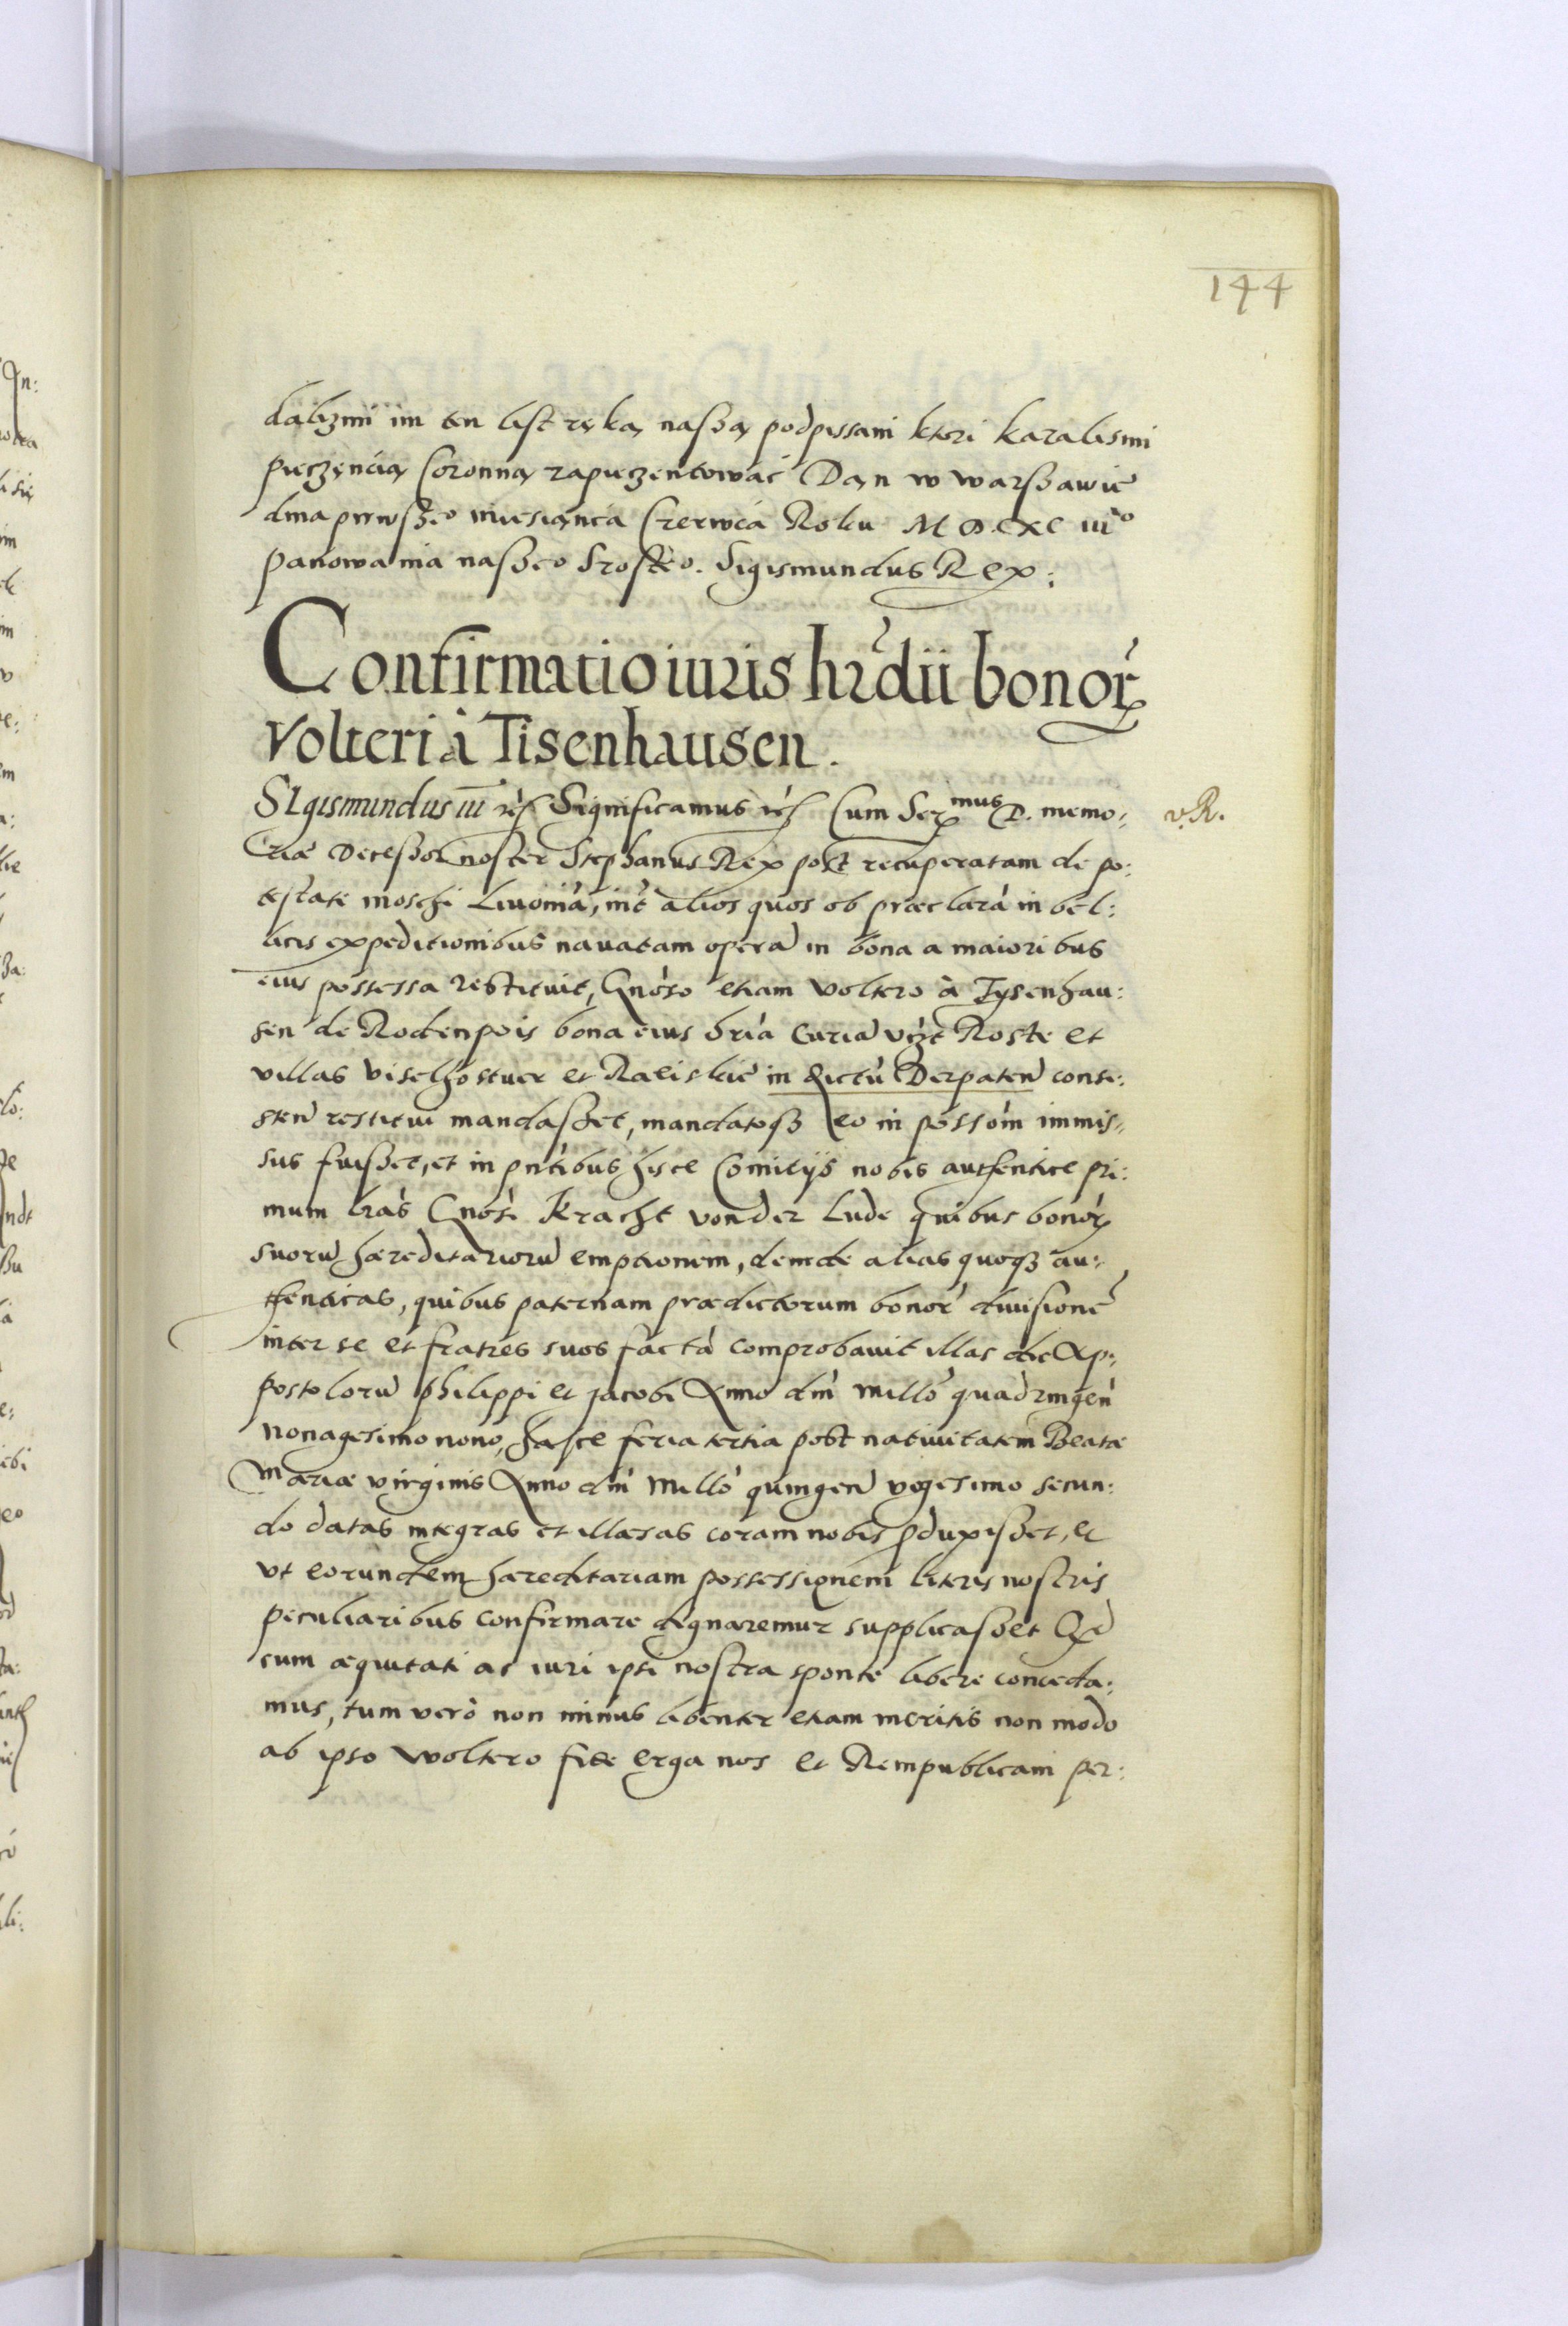 144
dalizmi im ten list ręką naszą podpissani ktori karalismi
pieczęncią Coronną zapieczentowác Dan w warszawie
dnia pirwszeo miesiąncá Czerwcá Roku M D. XC iiio
panowania naszeo Szosteo. Sigismundus Rex:
Confirmatio iuris hrdii bonor
Volteri à Tisenhausen.
SIgismundus iii rc̃ Significamus rc̃ Cum Sermus D. memo:
v.R.
riæ Decessor noster Stephanus Rex post recuperatam de po:
testate moschi Livoniã, int̃ alios quos ob præclarã in bel:
licis expeditionibus navatam operã in bona a maioribus
eius possessa restituit, Gnoso etiam Voltero à Tysenhau:
sen de Rodenpois bona eius hr̃ia Curiã vizt Roste et
villas viselhostuer et Raeiskie in dictũ Derpateñ consi:
steñ restitui mandasset, mandatoq3 eo in possõm immis:
sus fuisset, et in pñtibus hisce Comitijs nobis authentice pri:
mum lr̃as Gnosi Kracht vonder Lude quibus bonor
suorũ hæreditariorũ emptionem, deinde alias quoq3 au:
thenticas, quibus paternam prædictorum bonor divisionẽ
inter se et fratres suos factã comprobavit illas die Ap:
postolorũ Philippi et Jacobi Anno dñi millõ quadringeñ
nonagesimo nono, hasce feria tertia post nativitatem Beatæ
Mariæ virginis Anno dñi Millõ quingeñ vigesimo secun:
do datas integras et illæsas coram nobis pduxisset, et
vt eorundem hæreditariam possessionem literis nostris
peculiaribus confirmare dignaremur supplicasset Qd
cum æquitati ac iuri ipsi nostra sponte libere conceda:
mus, tum verò non minus libenter etiam meritis non modo
ab ipso Woltero fide erga nos et Rempublicam per: